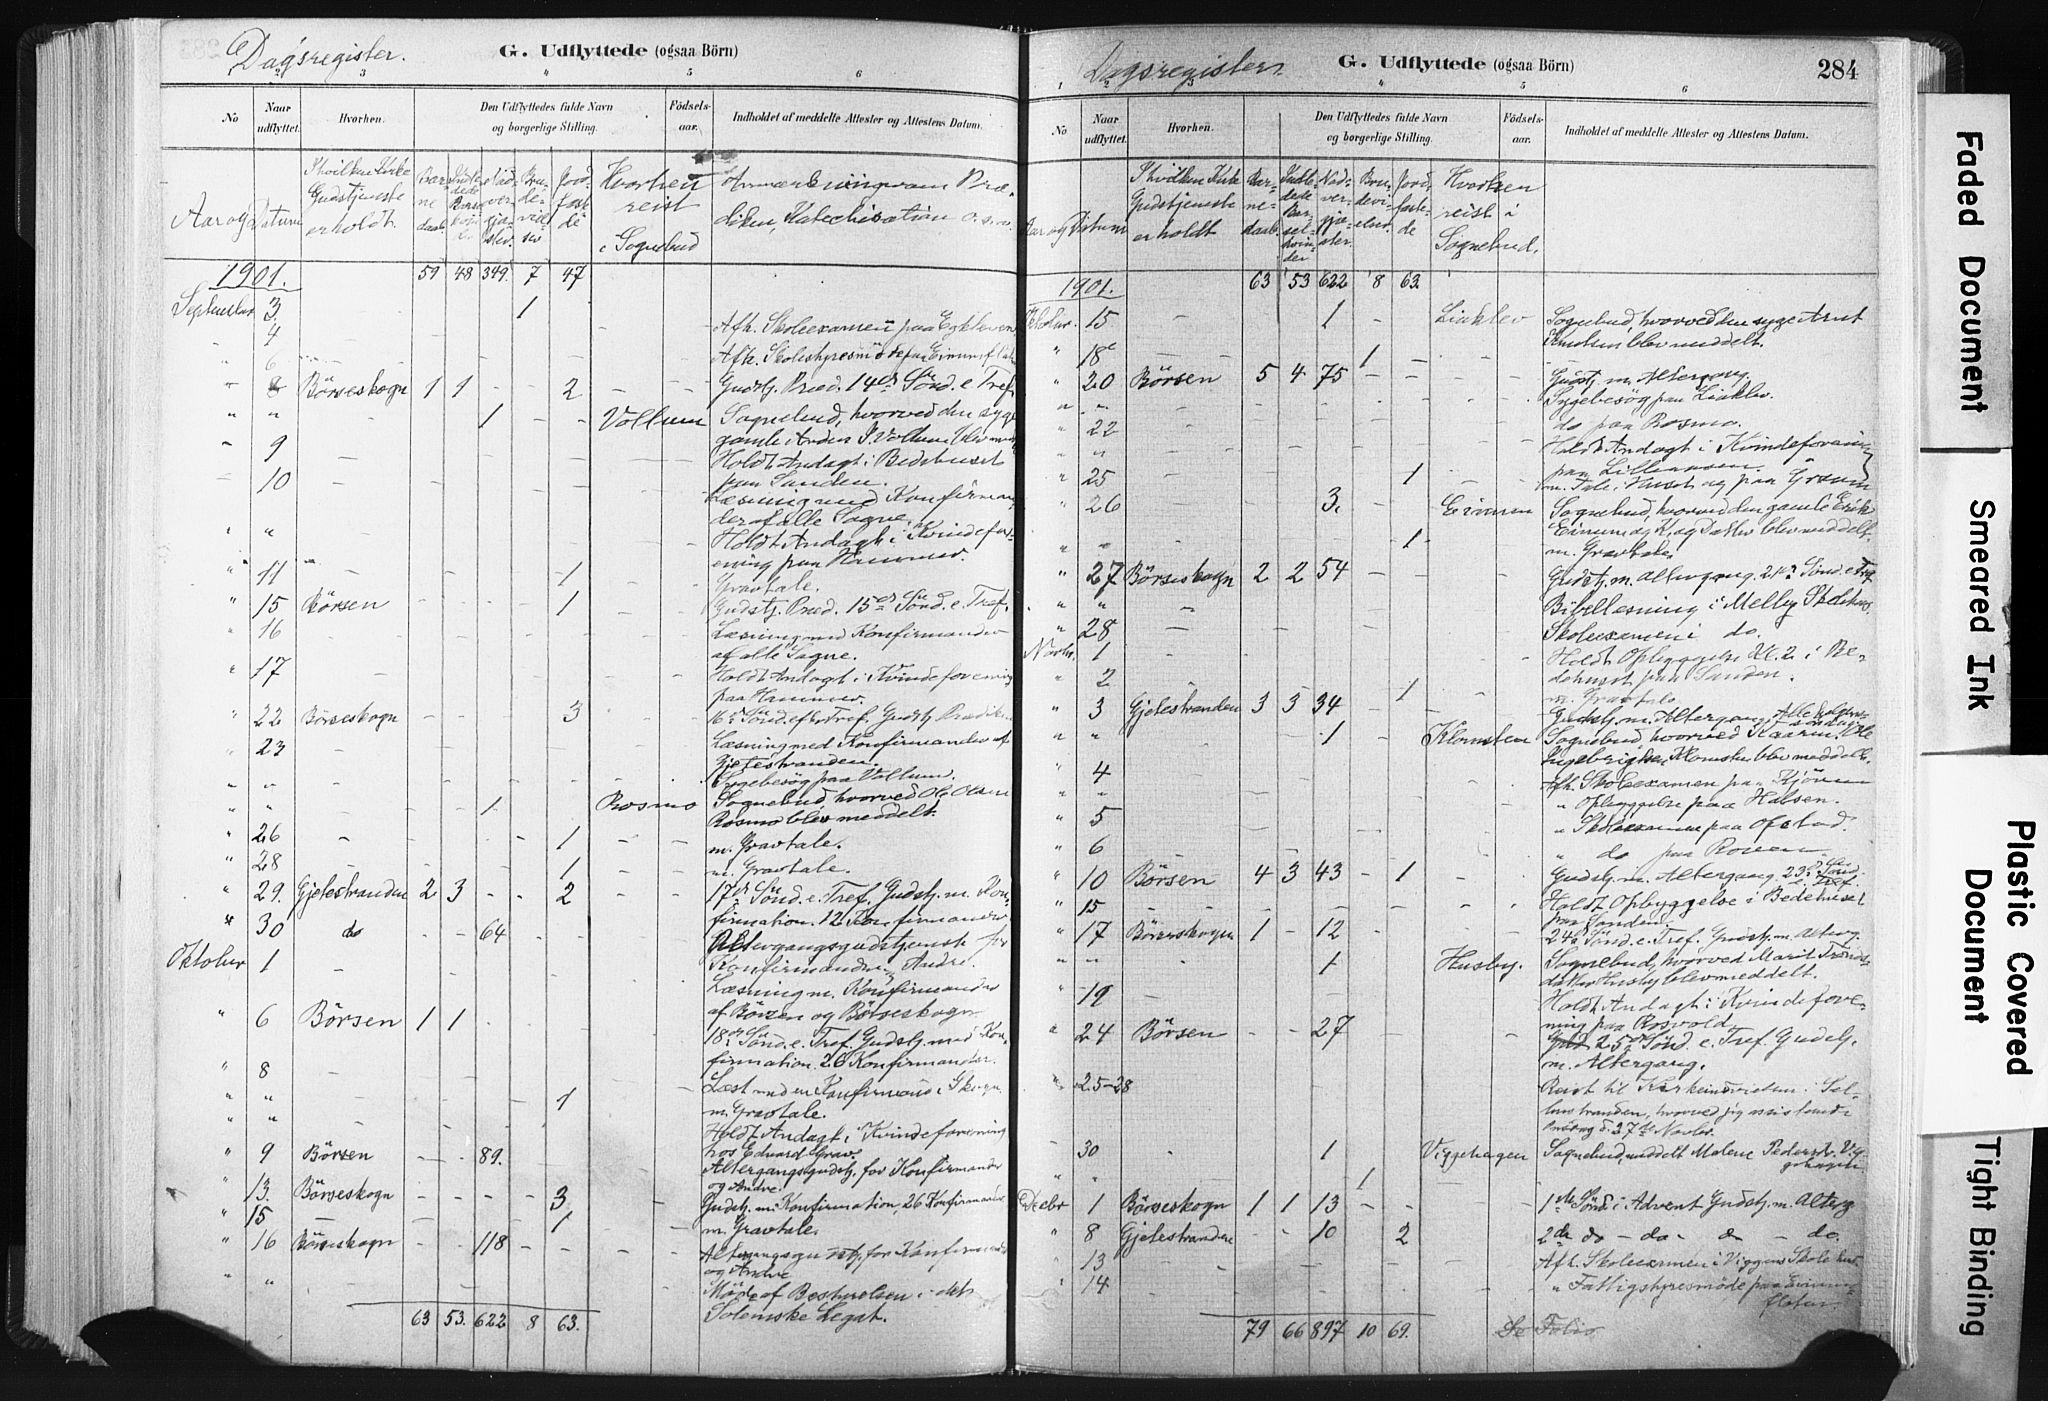 Dagsregister.
G. Udflyttede (ogsaa Börn)
1 2 3 4 5 6
No
Naar udflyttet.
Hvorhen.
Den Udflyttedes fulde Navn
og borgerlige Stilling.
Födsels-
aar.
Indholdet af meddelte Attester og Attestens Datum.
Aar og Datum
I hvilken Kirke
Gudstjeneste
er holdt.
Bar-
ne
daab
Hvorhen
reist
i Sognebud
1901. 59 48 349. 7 47
September 3. 1
4 Afh. Skoleexamen paa
6 Afh. Skolestyresmöde paa
8 Börseskogn 1 1 2 Gudstj. Præd. 14de Sönd. e. Tref.
" " 1 Vollum Sognebud, hvorved den syge
gamle Anders J. Vollum blev
9 Holdt Andagt i Bedehuset
paa Sanden.
10 Læsning med Konfirman-
der af alle Sogne.
" " Holdt Andagt i Kvindefor-
ening paa Hammer.
" 11 1 Gravtale.
" 15 Börsen 1 Gudstj. Præd. 15de Sönd. e. Tref.
" 16 Læsning med Konfirmander
af alle Sogne.
" 17 Holdt Andagt i Kvindeforening
paa Hammer.
" 22 Börseskogn 3 16de Sönd. eft. Tref. Gudstj.
" 23 Læsning med Konfirmander af
Gjetestranden.
" " Sygebesög paa Vollum.
" " 1 Rosmo Sognebud, hvorved Ole Olsen
Rosmo blev meddelt.
" 26 1 m. Gravtale.
" 28 1 m. Gravtale.
" 29. Gjetestranden 2 3 2 17de Sönd. e. Tref. Gudstj. m. Kon-
firmation. 12 Konfirmander.
" 30 do 64 Altergangsgudstjeneste for
Konfirmander, Andre.
Oktober 1 Læsning m. Konfirmander
af Börsen og Börseskogn
" 6 Börsen 1 1 18de Sönd. e. Tref. Gudstj. med Kon-
firmation. 26 Konfirmander.
" 8 Læst med en Konfirmand i Skogn.
" " 1 m. Gravtale.
" " Holdt Andagt i Kvindeforening
hos Edvard Grav.
" 9 Börsen 89. Altergangsgudstj. for Konfirmander
og Andre.
" 13. Börseskogn 3 Gudstj. m. Konfirmation, 26 Konfirmander
" 15 1 m. Gravtale.
" 16 Börseskogn 118 for Konfirmand
og Andre
" " Möde af Bestyrelsen i det
Solemske Legat.
63 53. 622 8 63.
Dagsregister.
G. Udflyttede (ogsaa Börn)
284
1 2 3 4 5 6
No
Naar udflyttet.
Hvorhen.
Den Udflyttedes fulde Navn
og borgerlige Stilling.
Födsels-
aar.
Indholdet af meddelte Attester og Attestens Datum.
Aar og Datum
I hvilken Kirke
Gudstjeneste
er holdt
Bar-
ne-
daab.
Hvorhen
reist i
Sognebud.
1901. 63 53 622 8 63.
Oktober. 15 1 Liaklev Sognebud, hvorved den syge Arnt
Knutsen blev meddelt.
" 18 1
" 20 Börsen 5 4 75 Gudstj. m. Altergang.
" " Sygebesög paa Liaklev.
" 22 do paa Rosmo.
" " Holdt Andagt i Kvindeforening
" 25 1 m. Tale i Huset og paa Graven
" 26 3. Eirinum Sognebud, hvorved den gamle Erik
Eirinum og K. og Datter blev meddelt.
" " 1 m. Gravtale.
" 27 Börseskogn 2 2 54 Gudstj. m. Altergang. 21de Sönd. e. Tref
" " Bibellesning i Melby Skolehus.
" 28 Skoleexamen i do.
Novbr. 1 Holdt Opbyggelse Kl. 2 i Be-
dehuset paa Sanden.
" 2 1 m. Gravtale
" 3 Gjetestranden 3 3 34 Gudstj. m. Altergang, Alle helgens-
söndag.
" " 1 Klomsten Sognebud hvorved Karen Ole
Ingebrigtsen Klomsten blev meddelt.
" 4 Afh. Skoleexamen paa
" " " Opbyggelse paa Halsen.
" 5 " Skoleexamen paa Ofstad.
" 6 " do paa
" 10 Börsen 4 3 43 1 Gudstj. m. Altergang. 23de Sönd.
e. Tref.
" 15 Holdt Opbyggelse i Bedehuset
paa Sanden
" 17 Börseskogn 1 12 24de Sönd. e. Tref. Gudstj. m. Alterg.
" " 1 Husby. Sognebud, hvorved Marit Tronds-
datter Husby blev meddelt.
" 19 Holdt Andagt i Kvindefore-
ning paa Rosvold.
" 24 Börsen 27 25de Sönd. e. Tref. Gudstj.
m. Altergang.
" 25-28 Reist til Kirkeindvielsen i
hvorved jeg assisterede
d. 27de Novbr.
30 1 Viggehagen Sognebud, meddelt Malene Pedersdr. Vig-
gehagen
" " 1
Decbr 1 Börseskogn 1 1 13 1ste Sönd. i Advent Gudstj. m. Alterg
" 8 Gjetestranden 10 2 2den do - do - do - do.
" 13 Afh. Skoleexamen i Viggens Skolehus
" 14 " Fattigstyresmöde paa
79 66 897 10 69.
Se Folio
Faded Document
Smeared Ink
Plastic Covered
Document
Tight Binding